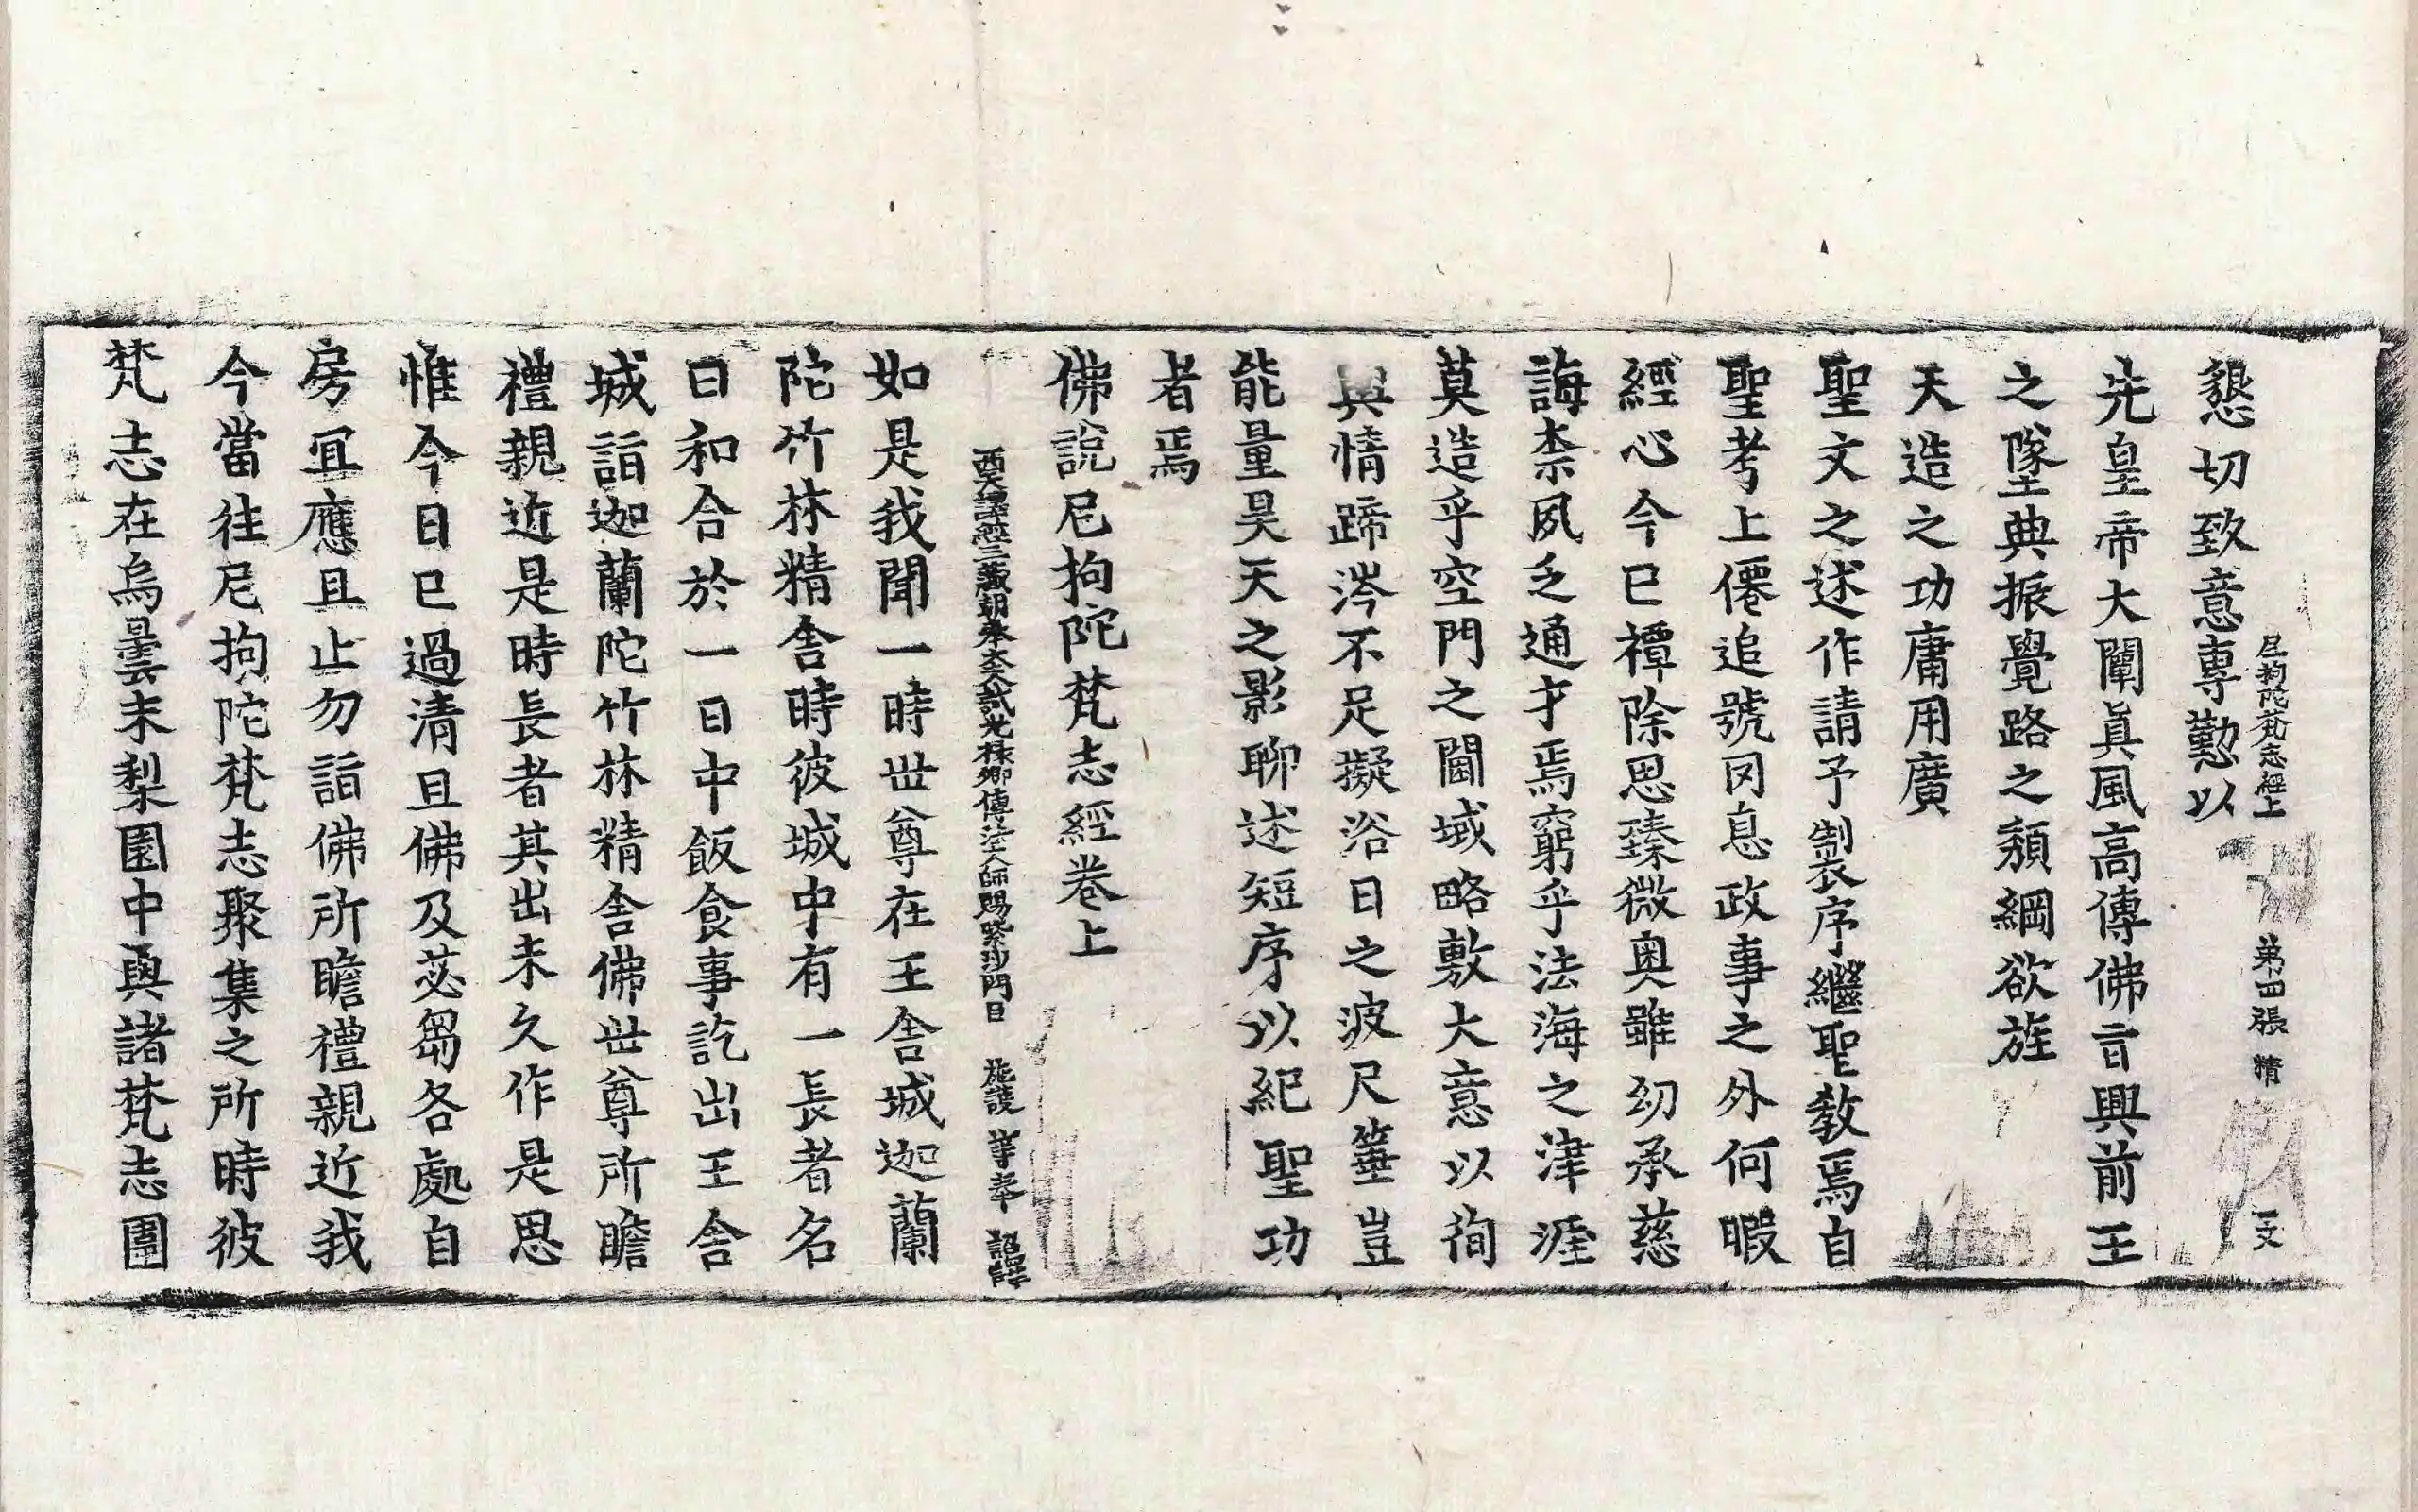 懇切致意專勤以
尼拘陁梵志經上 第四張 精 文
先皇帝大闡眞風高傳佛旨興前王
之墜典振覺路之頹綱欲旌
天造之功庸用廣
聖文之述作請予製序繼聖教焉自
聖考上僊追號罔息政事之外何暇
經心今已禫除思臻微奧雖幼承慈
誨柰夙乏通才焉窮乎法海之津涯
莫造乎空門之閫域略敷大意以徇
輿情蹄涔不足擬浴日之波尺箠豈
能量昊天之影聊述短序以紀聖功
者焉
佛說尼拘陁梵志經卷上
西天譯經三藏朝奉大夫試光祿卿傳法大師賜紫沙門臣 施護 等奉 詔譯
如是我聞一時世尊在王舍城迦蘭
陁竹林精舍時彼城中有一長者名
曰和合於一日中飯食事訖出王舍
城詣迦蘭陁竹林精舍佛世尊所瞻
禮親近是時長者其出未久作是思
惟今日已過清旦佛及苾芻各處自
房冝應且止勿詣佛所瞻禮親近我
今當往尼拘陁梵志聚集之所時彼
梵志在烏曇末梨園中與諸梵志圍